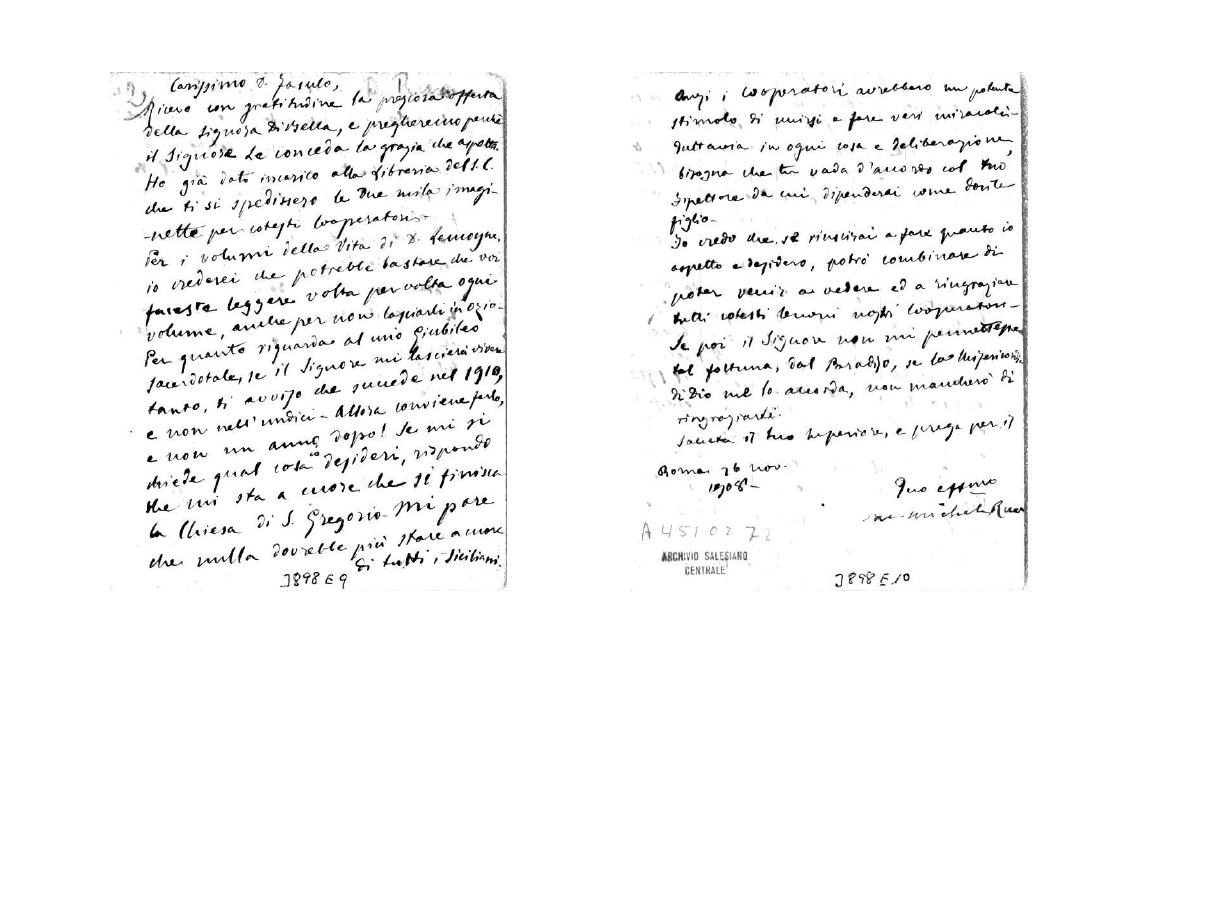 Carissimo D. Fasulo,
Ricevo con gratitudine la preziosa offerta
della Signora Dibella, e pregheremo perchè
il Signore Le conceda la grazia che aspetta.
Ho già dato incarico alla Libreria del S. C.
che ti si spedissero le Due mila imagi-
-nette per cotesti Cooperatori.-
Per i volumi della Vita di D. Lemoyne,
io crederei che potrebbe bastare che voi
faceste leggere volta per volta ogni
volume, anche per non lasciarli in ozio.-
Per quanto riguarda al mio Giubileo
sacerdotale, se il Signore mi lascierà vivere
tanto, ti avviso che succede nel 1910,
e non nell'undici - Allora conviene farlo,
e non un anno dopo! Se mi si
chiede qual cosa io desideri, rispondo
che mi sta a cuore che si finisca
la Chiesa di S. Gregorio. Mi pare
che nulla dovrebbe più stare a cuore
di tutti i Siciliani.
J898 E 9
Anzi i Cooperatori avrebbero un potente
stimolo di unirsi a fare veri miracoli-
Tuttavia in ogni cosa e deliberazione,
bisogna che tu vada d'accordo col tuo
Ispettore da cui dipenderai come
figlio-
Io credo che se riuscirai a fare quanto io
aspetto e desidero, potrò combinare di
poter venir a vedere ed a ringraziare
tutti cotesti buoni nostri Cooperatori-
Se poi il Signore non mi permettesse
tal fortuna, dal Paradiso, se la Misericordia
di Dio me lo accorda, non mancherò di
ringraziarti.
Saluta il tuo Superiore, e prega per il
Roma 26 nov.
1908-
Tuo affmo
Sac. Michele Rua
A 4510272
ARCHIVIO SALESIANO
CENTRALE
J898 E 10